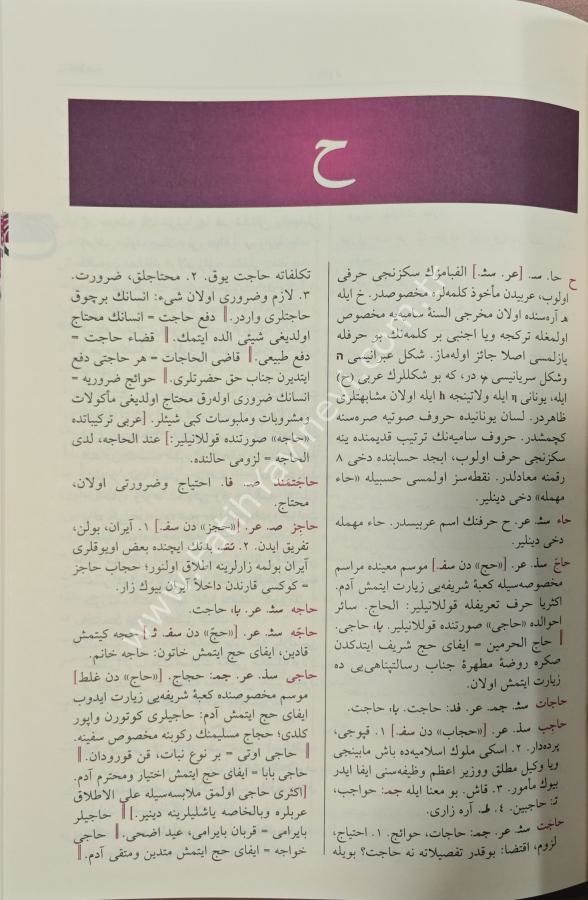 ح
ح حا. سـ. [عر. سثـ.] الفبامزك سكزنجی حرفی
اولوب، عربیدن مأخوذ كلمه‌لره مخصوصدر. خ ایله
هـ آره‌سنده اولان مخرجی السنهٔ سامیه‌یه مخصوص
اولمغله تركجه ویا اجنبی بر كلمه‌نك بو حرفله
یازلمسی اصلا جائز اوله‌ماز. شكل عبرانیسی ח
وشكل سریانیسی در، كه بو شكللرك عربی (ح)
ایله، یونانی η ایله ولاتینجه h ایله اولان مشابهتلری
ظاهردر. لسان یونانیده حروف صوتیه صره‌سنه
كچمشدر. حروف سامیه‌نك ترتیب قدیمنده ینه
سكزنجی حرف اولوب، ابجد حسابنده دخی ٨
رقمنه معادلدر. نقطه‌سز اولمسی حسبیله «حاء
مهمله» دخی دینلیر.
حاء سثـ. عر. ح حرفنك اسم عربیسدر. حاء مهمله
دخی دینلیر.
حاجّ سذ. عر. [«حج» دن سفـ.] موسم معینده مراسم
مخصوصه‌سیله كعبهٔ شریفه‌یی زیارت ایتمش آدم.
اكثریا حرف تعریفله قوللانیلیر: الحاج. سائر
احوالده «حاجی» صورتنده قوللانیلیر. با. حاجی.
‖ حاج الحرمین = ایفای حج شریف ایتدكدن
صكره روضهٔ مطهرهٔ جناب رسالتپناهی‌یی ده
زیارت ایتمش اولان.
حاجات سثـ. جمـ. عر. فد: حاجت. با. حاجت.
حاجب سذ. عر. [«حجاب» دن سفـ.] ١. قپوجی،
پرده‌دار. ٢. اسكی ملوك اسلامیه‌ده باش مابینجی
ویا وكیل مطلق ووزیر اعظم وظیفه‌سنی ایفا ایدر
بیوك مأمور. ٣. قاش. بو معنا ایله جمـ: حواجب،
تـ: حاجبین. ٤. طـ. آره زاری.
حاجت سثـ. عر. جمـ: حاجات، حوائج. ١. احتیاج،
لزوم، اقتضا: بوقدر تفصیلاته نه حاجت؟ بویله
تكلفاته حاجت یوق. ٢. محتاجلق، ضرورت.
٣. لازم وضروری اولان شیء: انسانك برچوق
حاجتلری واردر. ‖ دفع حاجت = انسانك محتاج
اولدیغی شیئی الده ایتمك. ‖ قضاء حاجت =
دفع طبیعی. ‖ قاضی الحاجات = هر حاجتی دفع
ایتدیرن جناب حق حضرتلری. ‖ حوائج ضروریه =
انسانك ضروری اوله‌رق محتاج اولدیغی مأكولات
ومشروبات وملبوسات كبی شیئلر. [عربی تركیباتده
«حاجه» صورتنده قوللانیلیر:] عند الحاجه، لدی
الحاجه = لزومی حالنده.
حاجتمند صـ. فا. احتیاج وضرورتی اولان،
محتاج.
حاجز صـ. عر. [«حجز» دن سفـ.] ١. آیران، بولن،
تفریق ایدن. ٢. تشـ. بدنك ایچنده بعض اویوقلری
آیران بولمه زارلرینه اطلاق اولنور؛ حجاب حاجز
= كوكسی قارندن داخلاً آیران بیوك زار.
حاجه سثـ. عر. با. حاجت.
حاجّه سثـ. عر. [«حجّ» دن سفـ. ثـ.] حجه كیتمش
قادین، ایفای حج ایتمش خاتون: حاجه خانم.
حاجی سذ. عر. جمـ: حجاج. [«حاج» دن غلط]
موسم مخصوصنده كعبهٔ شریفه‌یی زیارت ایدوب
ایفای حج ایتمش آدم: حاجیلری كوتورن واپور
كلدی؛ حجاج مسلمینك ركوبنه مخصوص سفینه.
‖ حاجی اوتی = بر نوع نبات، قن قورودان. ‖
حاجی بابا = ایفای حج ایتمش اختیار ومحترم آدم.
[اكثری حاجی اولمق ملابسه‌سیله علی الاطلاق
عربلره وبالخاصه یاشلیلرینه دینیر.] ‖ حاجیلر
بایرامی = قربان بایرامی، عید اضحی. ‖ حاجی
خواجه = ایفای حج ایتمش متدین ومتقی آدم. ‖
www.tarihyayinevi.com.tr